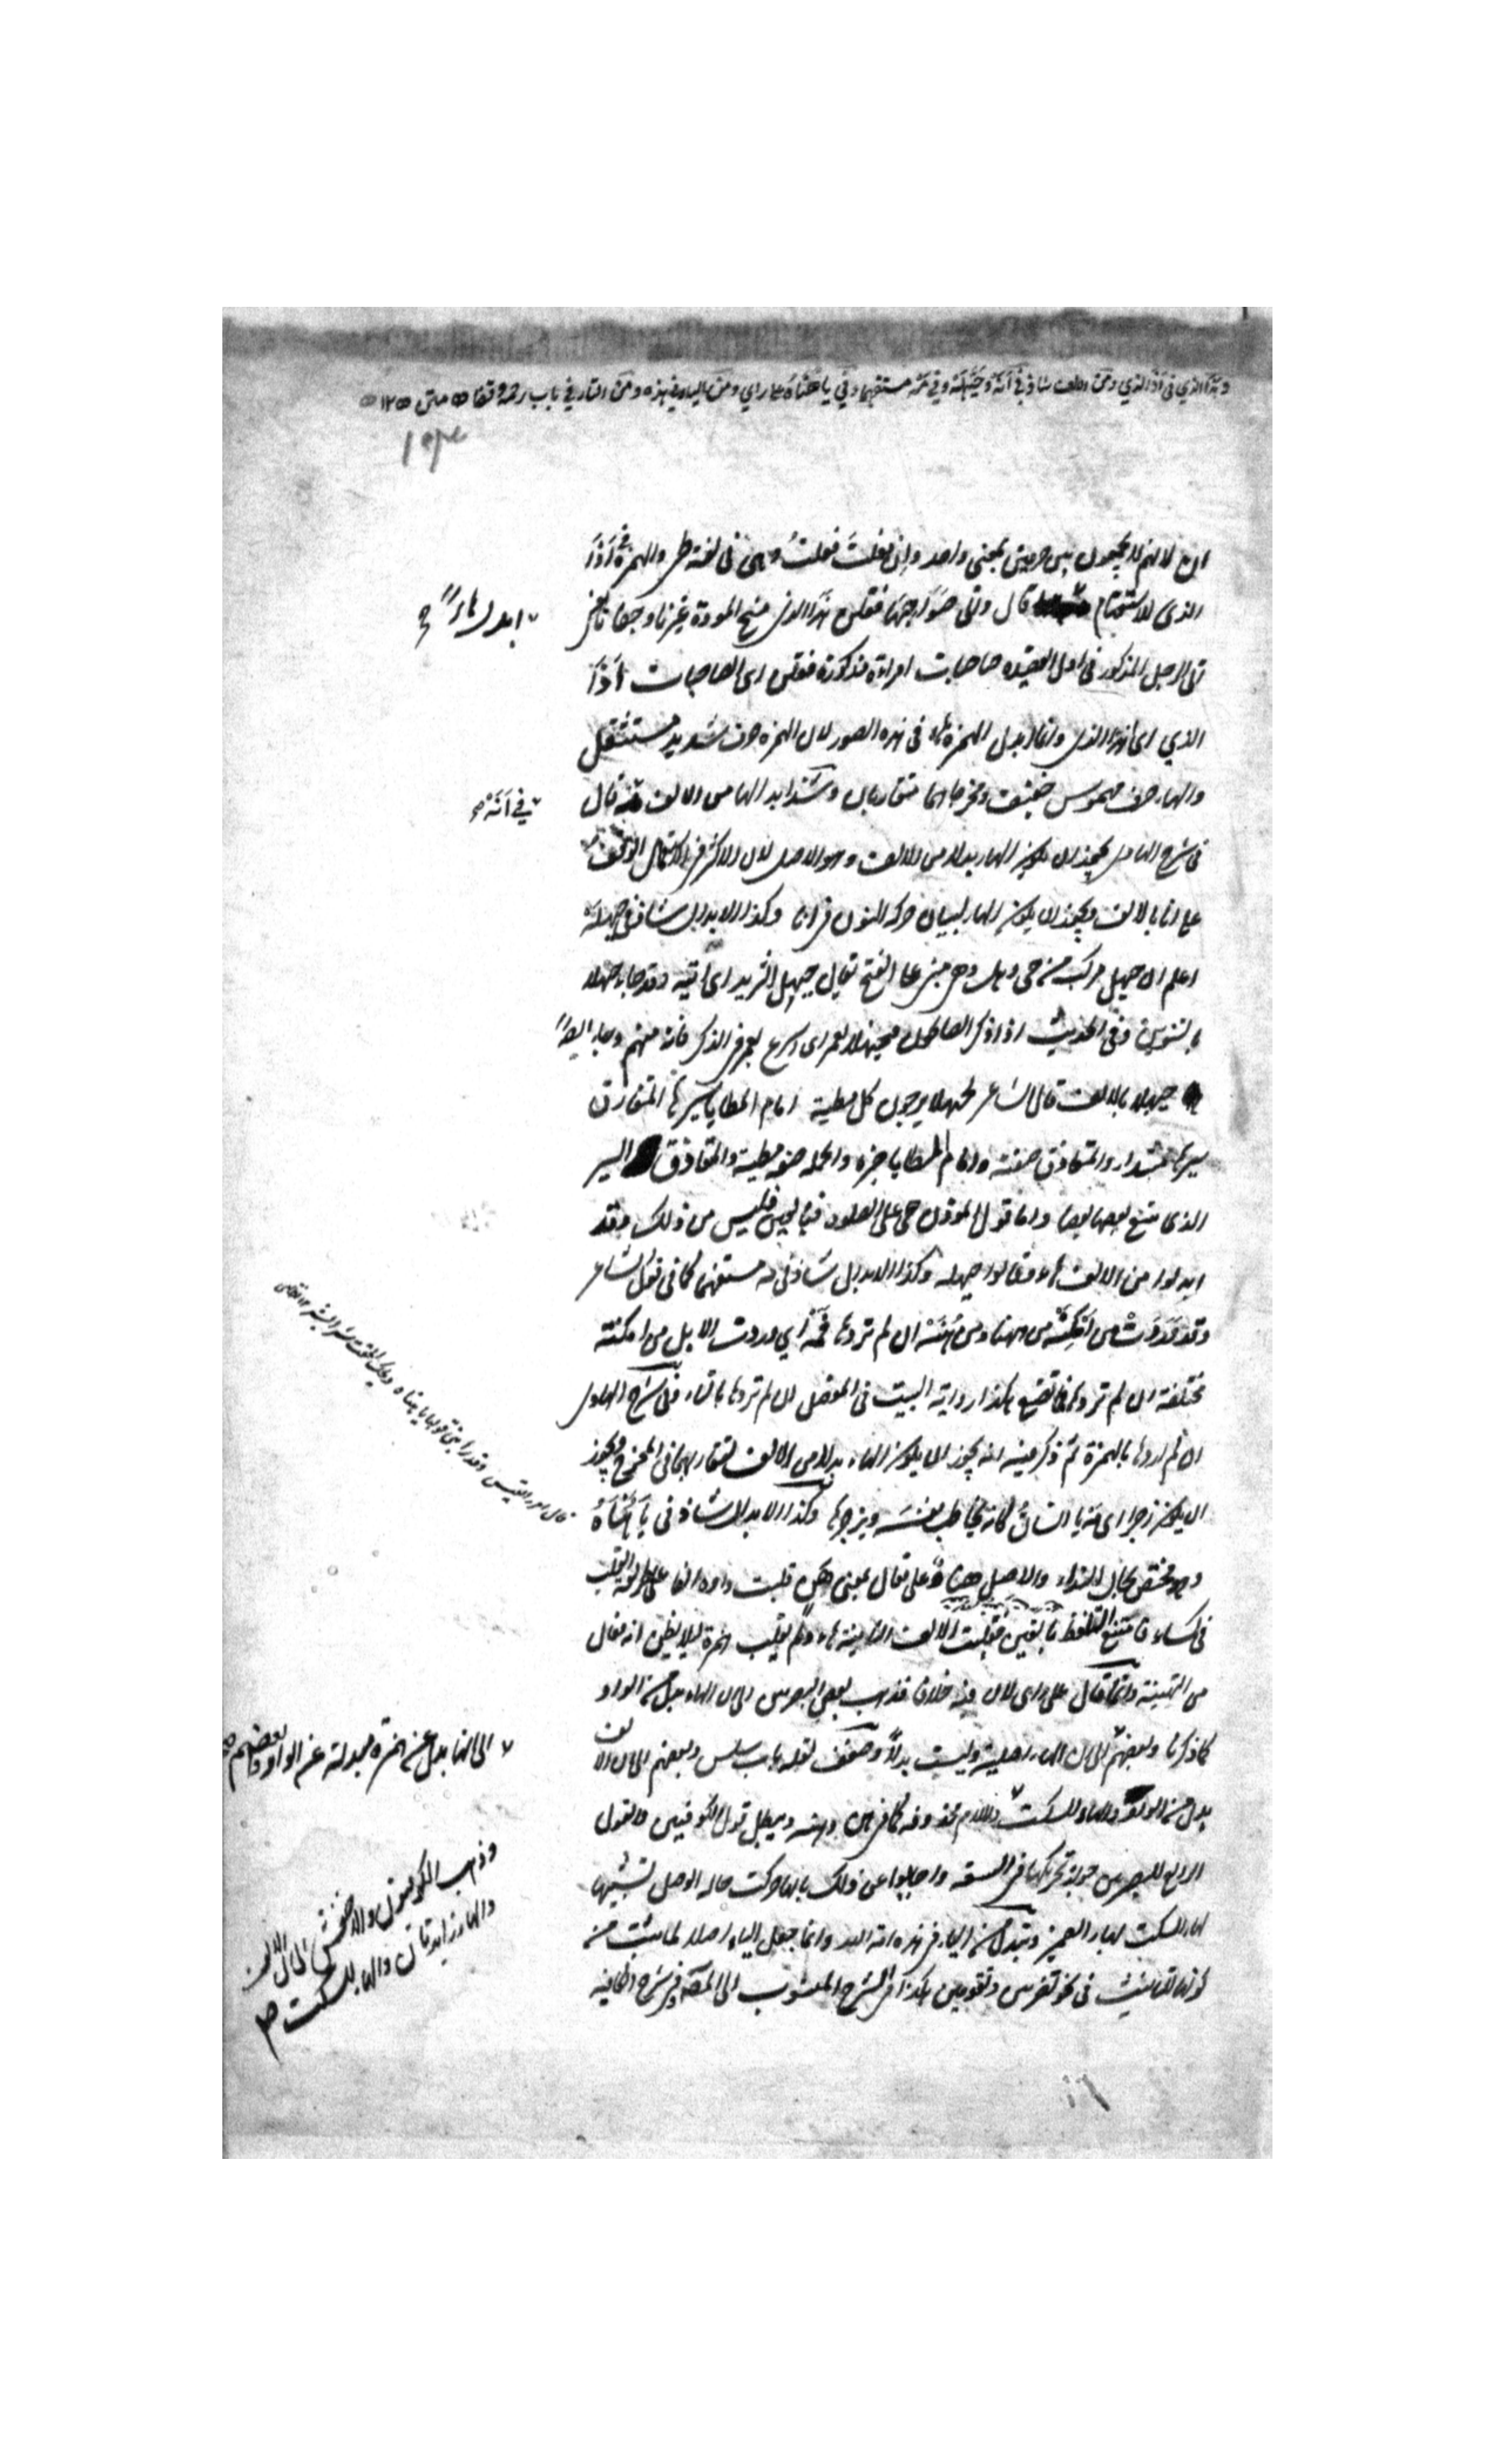 وهذا الذي في أذا الذي ومن الالف شاذ في أنه وحيهله وفي مه مستفهما وفي يا هناه على راي ومن الياء في هذه ومن التاء في باب رحمة وقفا متن ١٢
ان لانهم لا يجمعون بين حرفين بمعنى واحد وان فعلت فعلت وهن في لغة طي والهمزة في أذا
الذي للاستفهام قال واتى صواحبها فقلن هذا الذي منح المودة غيرنا وجفانا يعني
اتى الرجل المذكور في اول القصيده صاحبات امراة مذكورة فقلن اى الصاحبات أذا
الذي اى هذا الذي وانما ابدل الهمزة هاء في هذه الصور لان الهمزه حرف شديد مستثقل
والهاء حرف مهموس خفيف ومخرجاهما متقاربان وشذ ابدال الها من الالف قال
في شرح الهادى يجوز ان يكون الهاء بدلا من الالف وهو الاصل لان الاكثر في الاستعمال الوقف
على انا بالالف ويجوز ان يكون الهاء لبيان حركة النون في انا وكذا الابدال شاذ في حيهله
اعلم ان حيهل مركب من حى وهل وهى مبنى على الفتح تقول حيهل الثريد اى ائتيه وقد جاء حيهلا
بالتنوين وفي الحديث اذا ذكر الصالحون فحيهلا بعمر اى اسرع بعمر في الذكر فانه منهم وجاء ايضا
حيهلا بالالف قال الشاعر بحيهلا يزجون كل مطية امام المطايا سيرها المتقاذف
سيرها مبتداء والمتقاذف صفته وامام المطايا خبره والجملة صفة مطية والمتقاذف السير
الذى يتبع بعضها بعضا واما قول المؤذن حى على الصلوة فليس من ذلك وقد
ابدلوا من الالف هاء وقالوا حيهله وكذا الابدال شاذ في مه مستفهما كما في قول الشاعر
وقد وردت من امكنه من ههنا ومن هنه ان لم تروها فمه اي وردت الابل من امكنة
مختلفة ان لم تروها فما تصنع هكذا رواية البيت في المفصل ان لم تروها بالتاء وفي شرح الهادى
ان لم اروها بالهمزة ثم ذكر فيه انه يجوز ان يكون الهاء بدلا من الالف لتقاربهما في المخرج ويجوز
ان يكون زجرا اى مه يا انسان كانه يخاطب نفسه ويزجرها وكذا الابدال شاذ في يا هناه
وهو مختص بحال النداء والاصل هناو على فعال بمعنى هن قلبت واوه الفا على طريقة القلب
في كساء فامتنع التلفظ بالفين فقلبت الالف الثانية هاء ولم يقلب همزة لئلا يظن انه فعال
من التهنية وانما قال على راى لان فيه خلافا فذهب بعض البصريين الى ان الهاء بدل من الواو
كما ذكرنا وبعضهم الى ان الهاء اصلية وليست بدلا وضعف لقلة باب سلس وبعضهم الى ان الالف
بدل من الواو والهاء للسكت واللام محذوفة كما في هن وهنه ويبطل قول الكوفيين والقول
الرابع للبصريين جواز تحريكها في السعة واجابوا عن ذلك بانها حركت حالة الوصل تشبيها
لهاء السكت بهاء الضمير وتبدل من الياء في هذه امة الله وانما جعل الياء اصلا لما ثبت من
كونها للتانيث في نحو تضربين وتقومين هكذا في الشرح المنسوب الى المص وفي شرح
ابدل هاء صح
في أنه صح
قال امرؤ القيس وقد رابني قولها يا هناه ويحك الحقت شرا بشر
الى انها بدل عن همزة مبدلة عن الواو وبعضهم صح
وذهب الكوفيون والاخفش الى ان الالف
والهاء زائدتان والهاء للسكت صح